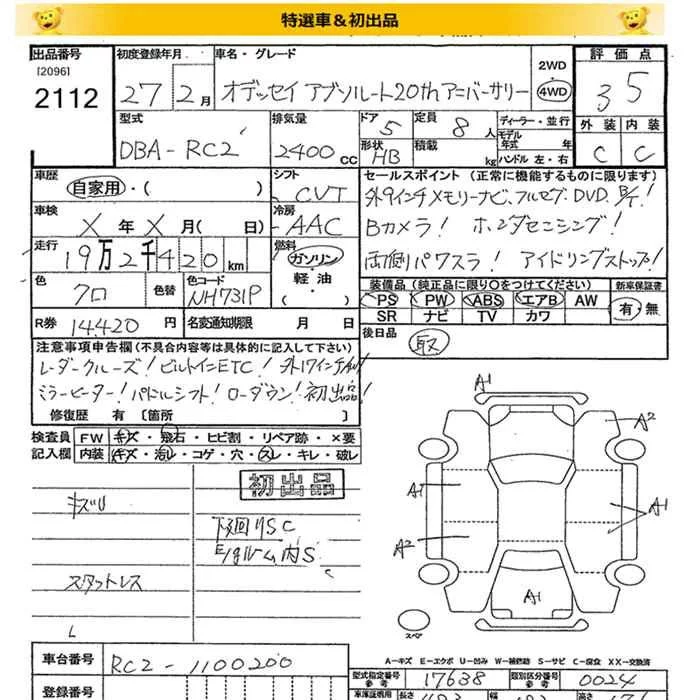 特選車＆初出品
出品番号
[2096]
2112
初度登録年月
27年2月
車名・グレード
オデッセイ アブソルート20thアニバーサリー
2WD
4WD
評価点
3 5
外装 内装
C C
型式
DBA-RC2
排気量
2400cc
ドア 5
形状 HB
定員 8人
積載 kg
ディーラー・並行
モデル年式 年
ハンドル 左・右
車歴
自家用・( )
シフト
CVT
車検
X年X月( 日)
冷房
AAC
走行
19万2千420km
燃料
ガソリン・軽油
( )
色
クロ
色替
色コード
NH731P
R券 14420円
名変通知期限 月 日
セールスポイント(正常に機能するものに限ります)
外9インチメモリーナビ、フルセグ、DVD、B/T!
Bカメラ! ホンダセンシング!
両側パワスラ! アイドリングストップ!
装備品(純正品に限り○をつけてください)
PS PW ABS エアB AW
SR ナビ TV カワ
新車保証書
有・無
後日品
取
注意事項申告欄(不具合内容等は具体的に記入して下さい)
レーダークルーズ! ビルトインETC! 外17インチAW
ミラーヒーター! パドルシフト! ローダウン! 初出品!
修復歴 有 [箇所 ]
検査員記入欄
FW キズ・飛石・ヒビ割・リペア跡・×要
内装 キズ・汚レ・コゲ・穴・スレ・キレ・破レ
初出品
キズU
下廻リSC
E/gルーム内S
スタットレス
A1
A2
A1
A1
A2
A1
スペア
A-キズ E-エクボ U-凹み W-補修跡 S-サビ C-腐食 XX-交換済
車台番号
RC2-1100200
型式指定番号
参考
17638
類別区分番号
参考
0024
登録番号
車庫証明用
長さ
幅
高さ